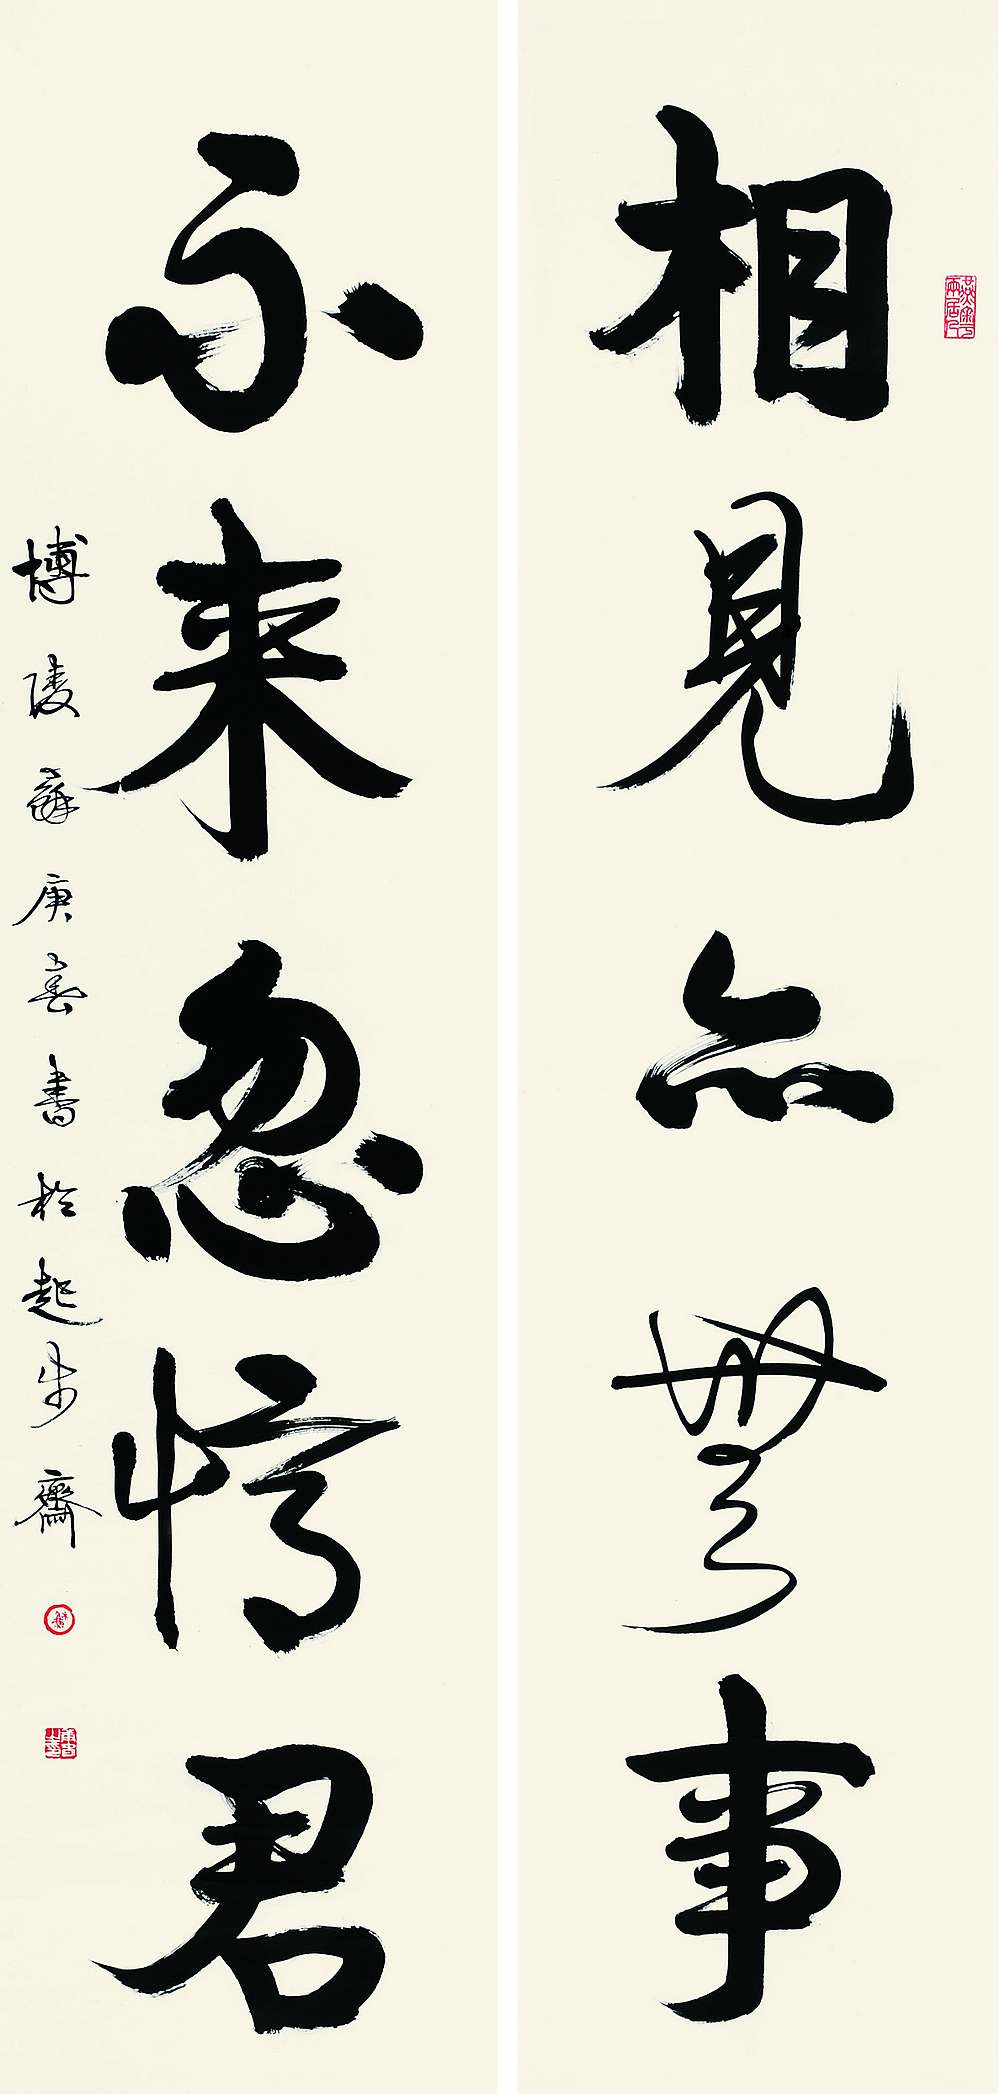 相見亦無事
不来忽憶君
博陵薛庚善書於起步齋